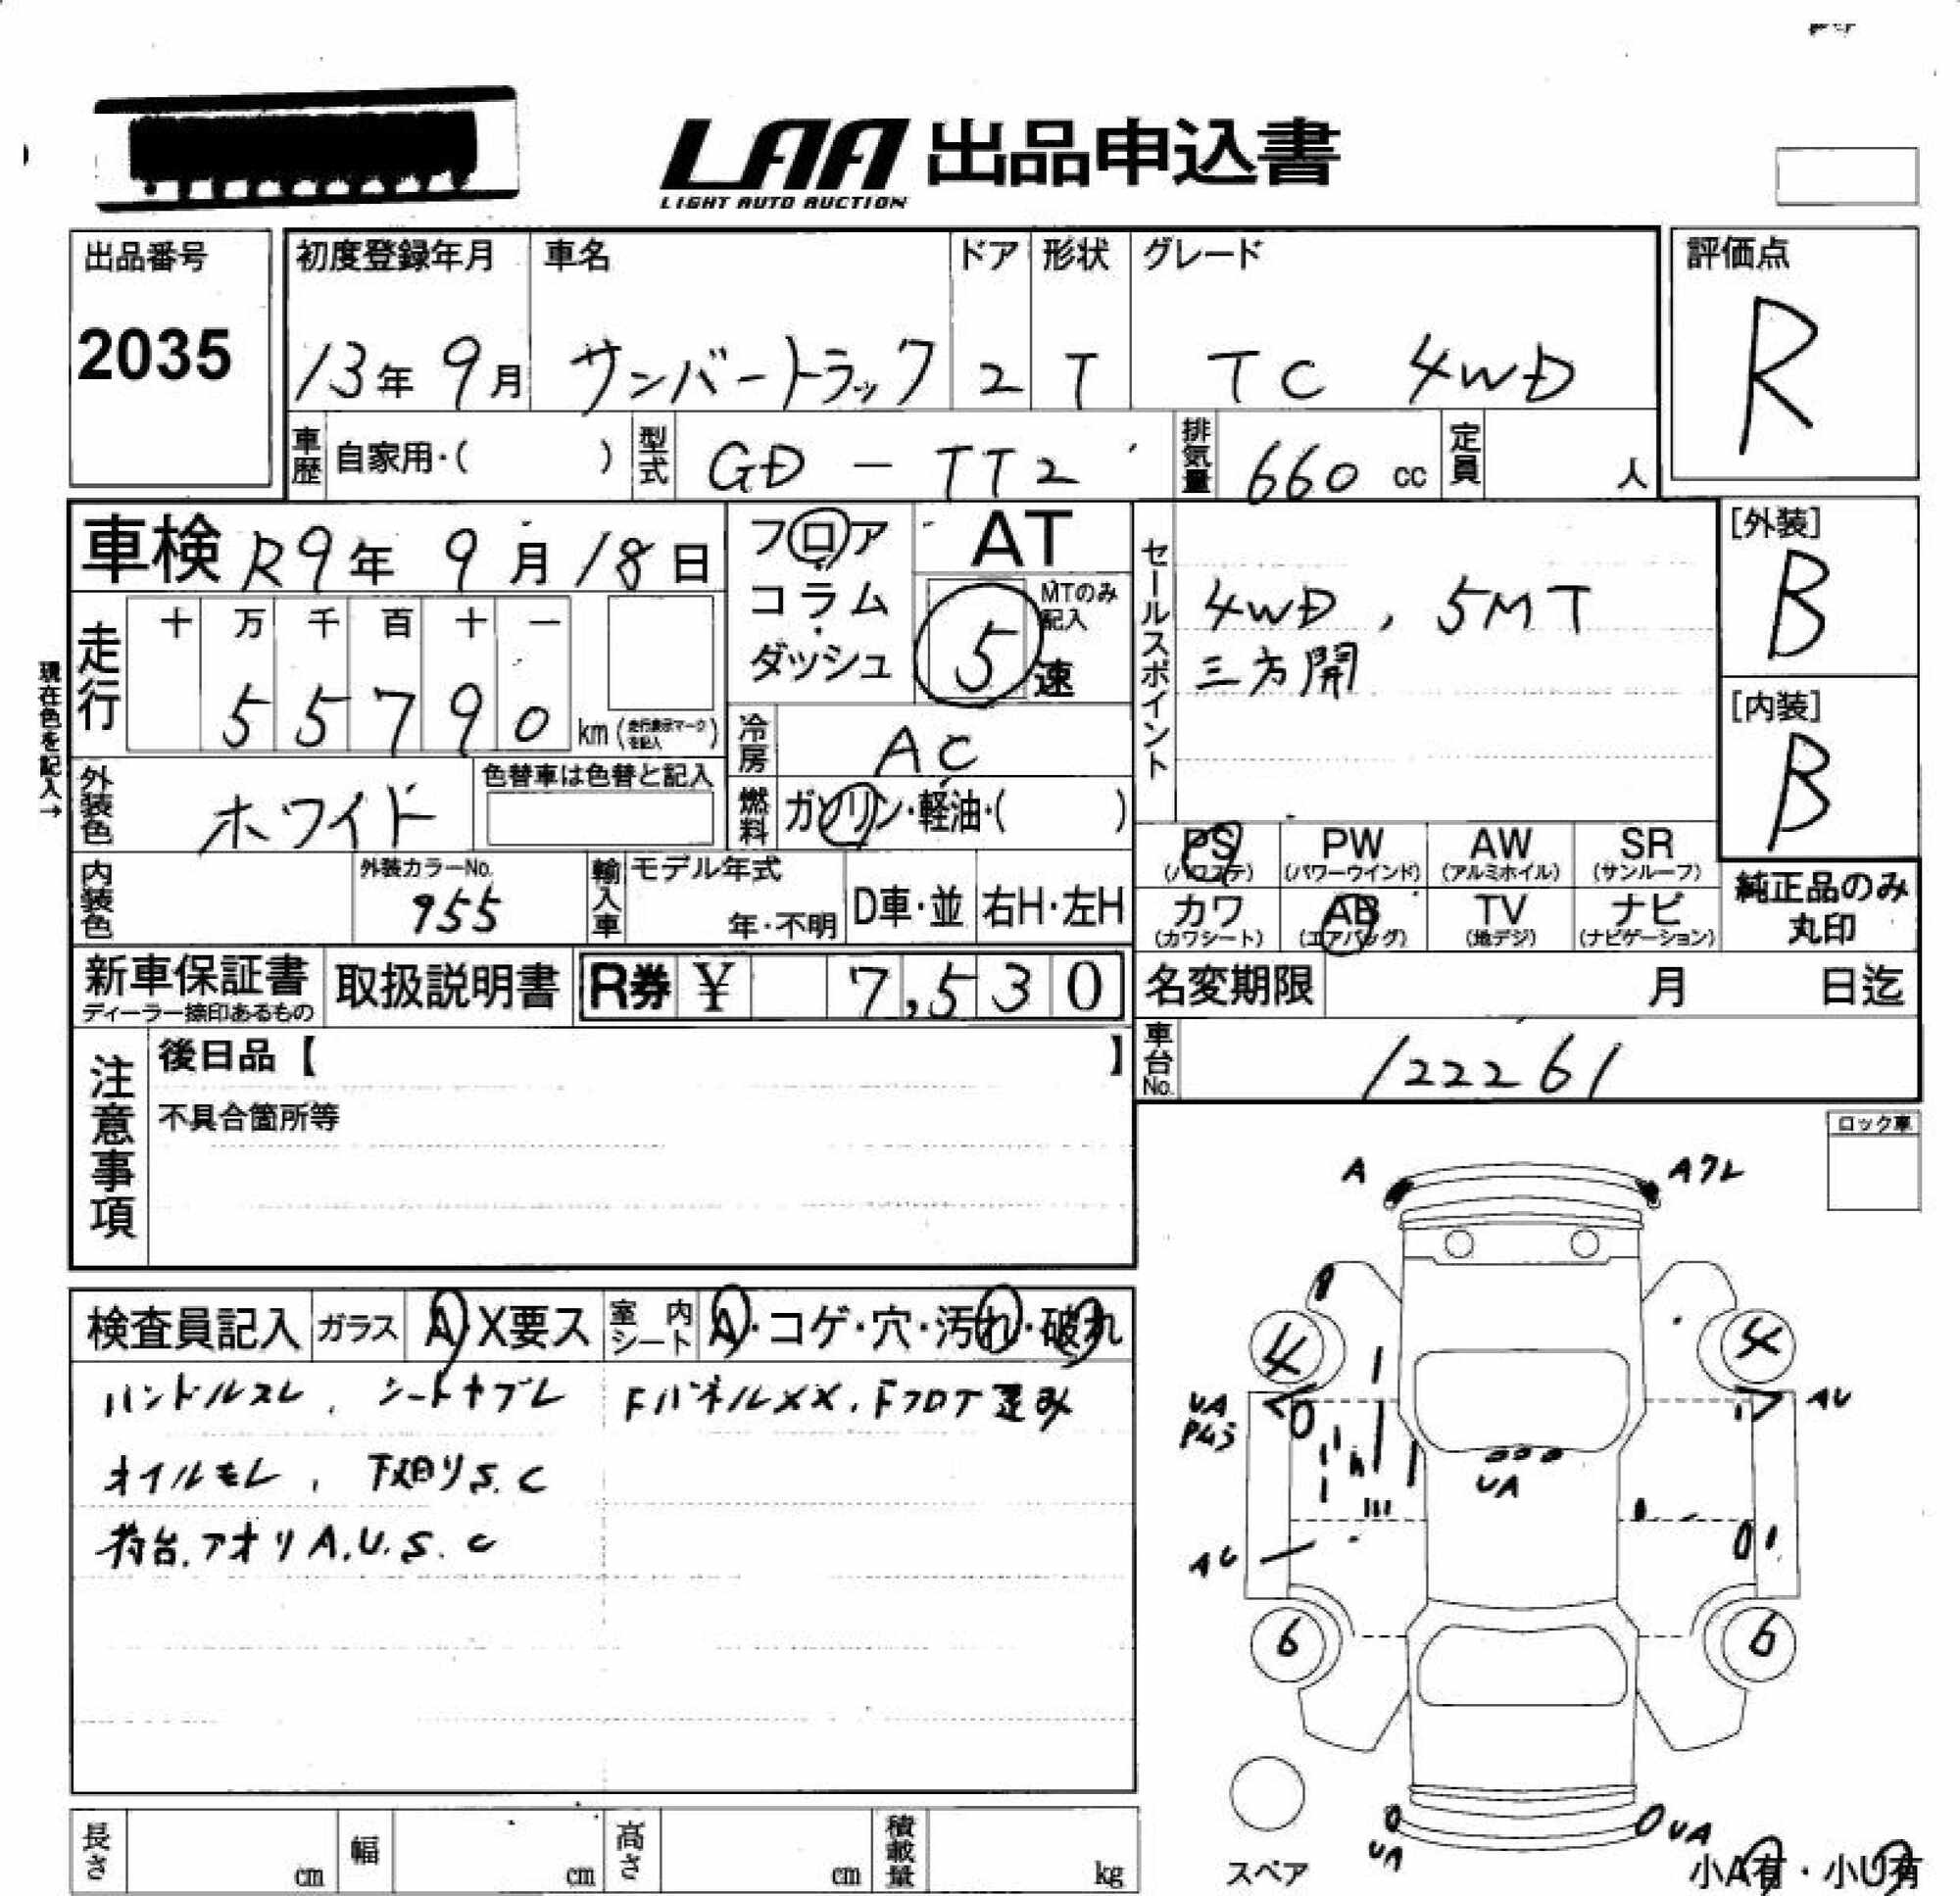 LAA 出品申込書
LIGHT AUTO AUCTION
出品番号
2035
初度登録年月
13年 9月
車名
サンバートラック
ドア
2
形状
T
グレード
TC 4WD
評価点
R
車歴 自家用・( )
型式 GD - TT2
排気量 660 cc
定員 人
車検 R9年 9月 18日
フロア・コラム・ダッシュ
AT
MTのみ記入
5 速
セールスポイント
4WD, 5MT
三方開
[外装]
B
[内装]
B
現在色を記入→
走行 十 万 千 百 十 一
55790 km (走行表示マークを記入)
冷房 AC
外装色 ホワイト
色替車は色替と記入
燃料 ガソリン・軽油・( )
PS (パワステ)
PW (パワーウインド)
AW (アルミホイル)
SR (サンルーフ)
カワ (カワシート)
AB (エアバッグ)
TV (地デジ)
ナビ (ナビゲーション)
純正品のみ丸印
内装色
外装カラーNo.
955
輸入車 モデル年式
年・不明
D車・並
右H・左H
新車保証書
ディーラー捺印あるもの
取扱説明書
R券 ¥ 7,530
名変期限 月 日迄
車台No. 122261
注意事項
後日品【 】
不具合箇所等
ロック車
検査員記入
ガラス A・X要ス
室内シート A・コゲ・穴・汚れ・破れ
ハンドルスレ, シートヤブレ
FパネルXX, Fフロア歪み
オイルモレ, 下廻りS.C
荷台.アオリA.U.S.C
A
Aワレ
4
4
UA
AU
UA
AU
6
6
UA
UA
スペア
小A有・小U有
長さ cm
幅 cm
高さ cm
積載量 kg